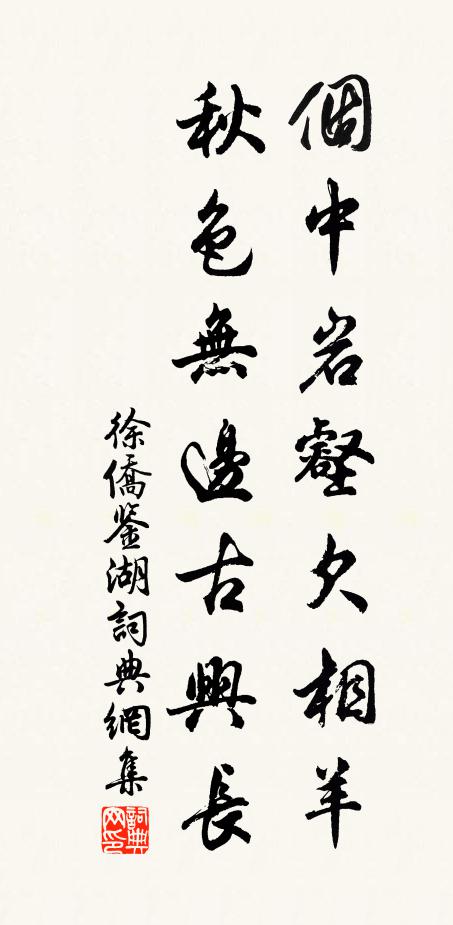 個中岩壑欠相羊
秋色無邊古興長
徐僑鉴湖詞典網集
詞典网印